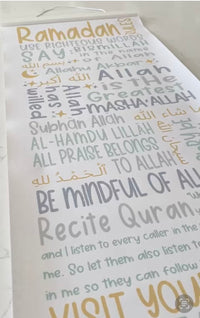 Ramadan
USE RIGHTEOUS WORDS
SAY: BISMILLAH
in the name
of Allah بسم الله
Allahu Akbar
Allah
is the
Greatest
Allah
has
willed
MASHA'ALLAH
Subhan Allah
AL-HAMDU LILLAH
ALL PRAISE BELONGS
TO ALLAH
الْحَمْدُ لِلَّهِ
BE MINDFUL OF AL
Recite Quran
and I listen to every caller in the
me. So let them also listen to
in me so they can follow
VISIT YOU